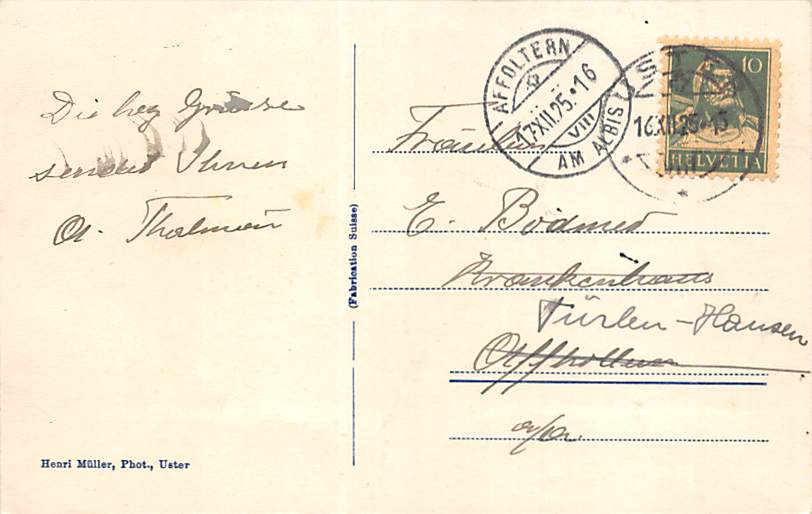 Die herz Grüsse
sendet Ihnen
A. Thalmann
Henri Müller, Phot., Uster
(Fabrication Suisse)
AFFOLTERN
17.XII.25.·16
VIII
AM ALBIS
16.XII.25
10
HELVETIA
Fräulein
E. Bodmer
Krankenhaus
Türlen-Hausen
Affholtern
a/a.